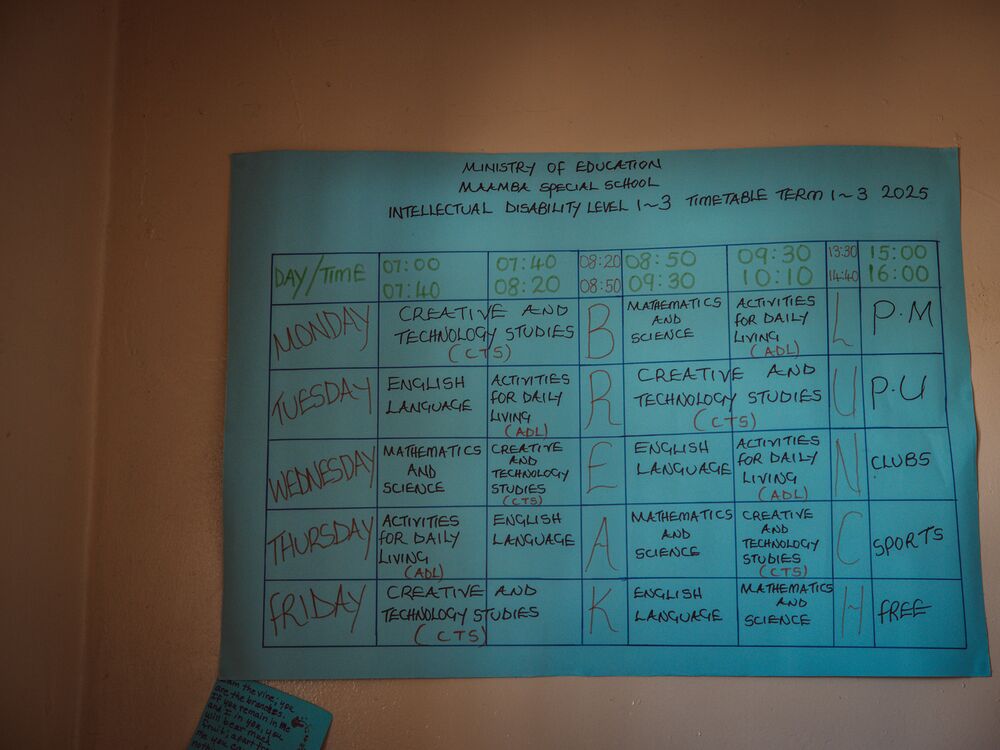 MINISTRY OF EDUCATION
MAAMBA SPECIAL SCHOOL
INTELLECTUAL DISABILITY LEVEL 1~3 TIMETABLE TERM 1~3 2025
DAY/TIME 07:00 07:40 07:40 08:20 08:20 08:50 08:50 09:30 09:30 10:10 13:30 14:40 15:00 16:00
MONDAY CREATIVE AND TECHNOLOGY STUDIES (CTS) B MATHEMATICS AND SCIENCE ACTIVITIES FOR DAILY LIVING (ADL) L P.M
TUESDAY ENGLISH LANGUAGE ACTIVITIES FOR DAILY LIVING (ADL) R CREATIVE AND TECHNOLOGY STUDIES (CTS) U P.U
WEDNESDAY MATHEMATICS AND SCIENCE CREATIVE AND TECHNOLOGY STUDIES (CTS) E ENGLISH LANGUAGE ACTIVITIES FOR DAILY LIVING (ADL) N CLUBS
THURSDAY ACTIVITIES FOR DAILY LIVING (ADL) ENGLISH LANGUAGE A MATHEMATICS AND SCIENCE CREATIVE AND TECHNOLOGY STUDIES (CTS) C SPORTS
FRIDAY CREATIVE AND TECHNOLOGY STUDIES (CTS) K ENGLISH LANGUAGE MATHEMATICS AND SCIENCE H FREE
am the vine; you
are the branches.
If you remain in me
and I in you, you
will bear much
fruit; apart
me you